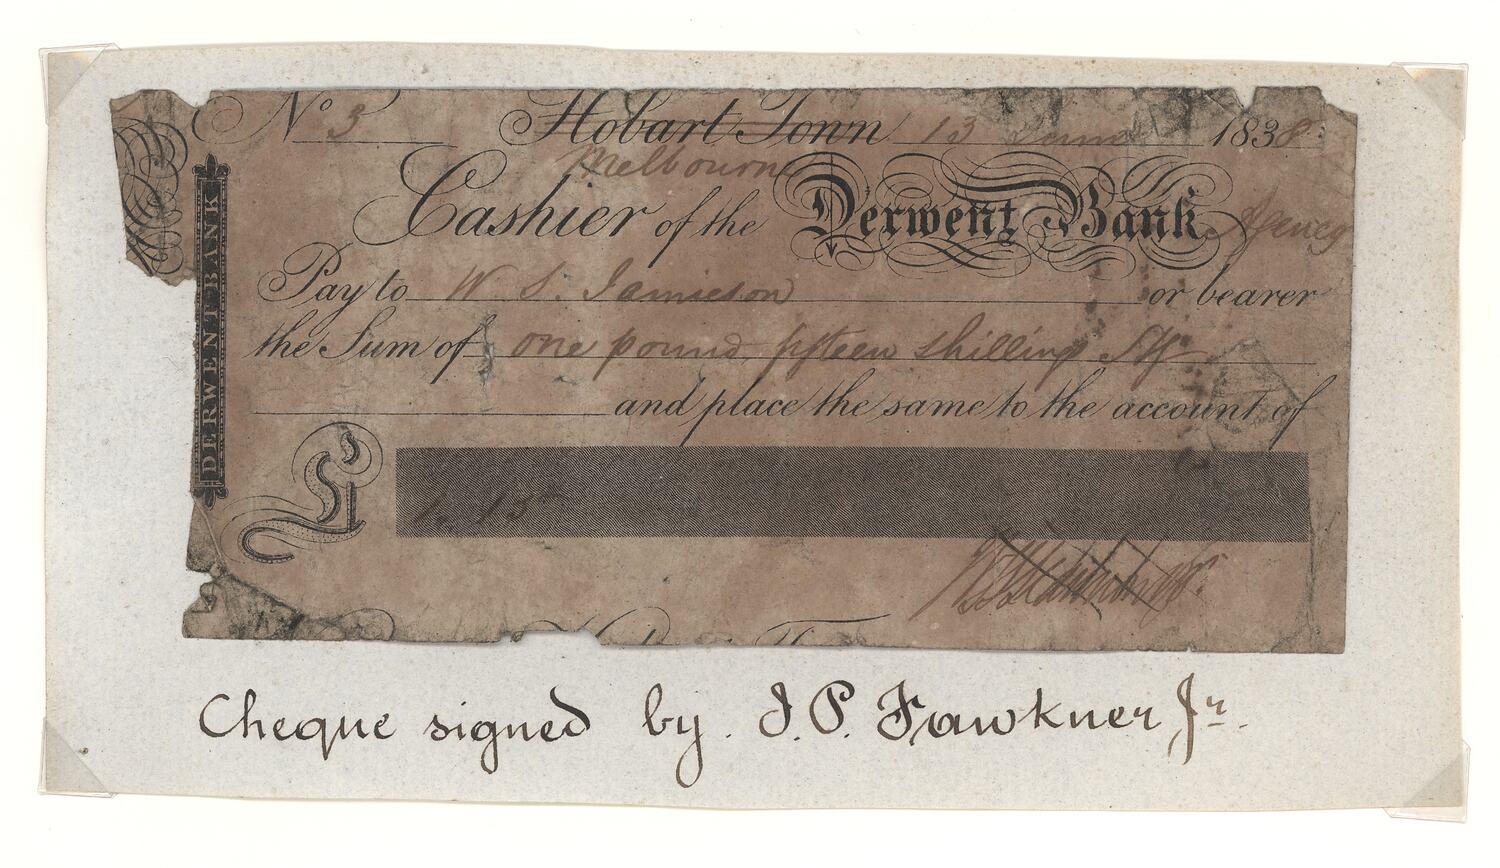 No 3 Hobart Town 13 June 1838
Melbourne
Cashier of the Derwent Bank Agency
Pay to W S. Jamieson or bearer
the Sum of one pound fifteen shilling Stg
and place the same to the account of
£ 1. 15
DERWENT BANK
Cheque signed by J. P. Fawkner Jr.